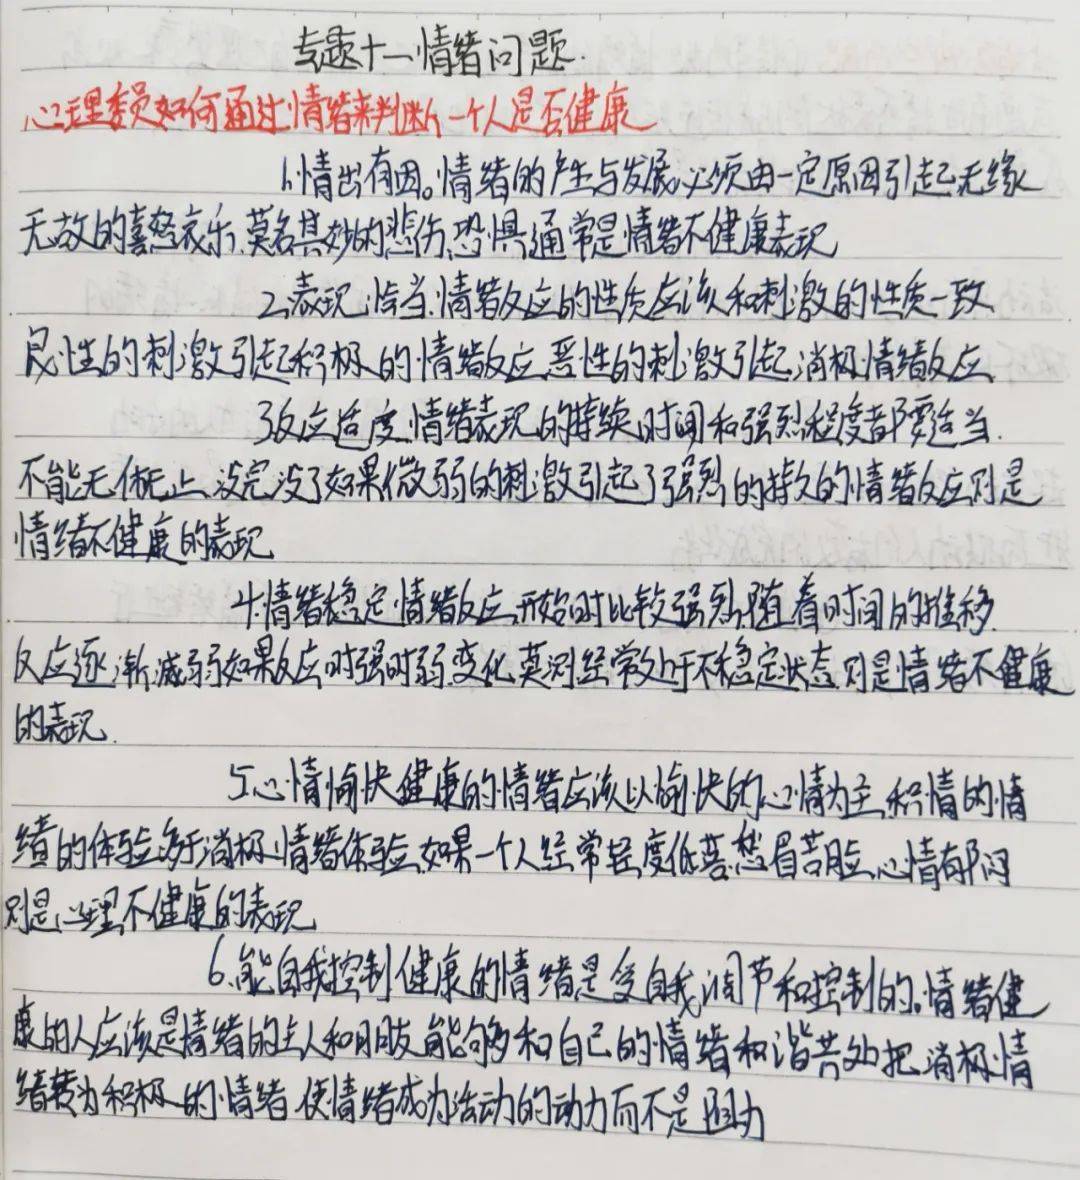 专题十一情绪问题.
心理委员如何通过情绪来判断一个人是否健康
1.情出有因。情绪的产生与发展必须由一定原因引起无缘
无故的喜怒哀乐、莫名其妙的悲伤、恐惧通常是情绪不健康表现
2.表现恰当.情绪反应的性质应该和刺激的性质一致.
良性的刺激引起积极的情绪反应.恶性的刺激引起消极情绪反应.
3反应适度.情绪表现的持续时间和强烈程度都要适当.
不能无休无止、没完没了如果微弱的刺激引起了强烈的持久的情绪反应则是
情绪不健康的表现
4.情绪稳定.情绪反应开始时比较强烈.随着时间的推移.
反应逐渐减弱如果反应时强时弱.变化莫测.经常处于不稳定状态.则是情绪不健康
的表现.
5.心情愉快健康的情绪应该以愉快的心情为主.积情的情
绪的体验多于消极情绪体验.如果一个人经常轻度低 愁眉苦脸心情郁闷
则是心理不健康的表现
6.能自我控制健康的情绪是受自我调节和控制的。情绪健
康的人应该是情绪的主人和朋友能够和自己的情绪和谐共处把消极情
绪转为积极的情绪.使情绪成为活动的动力而不是阻力